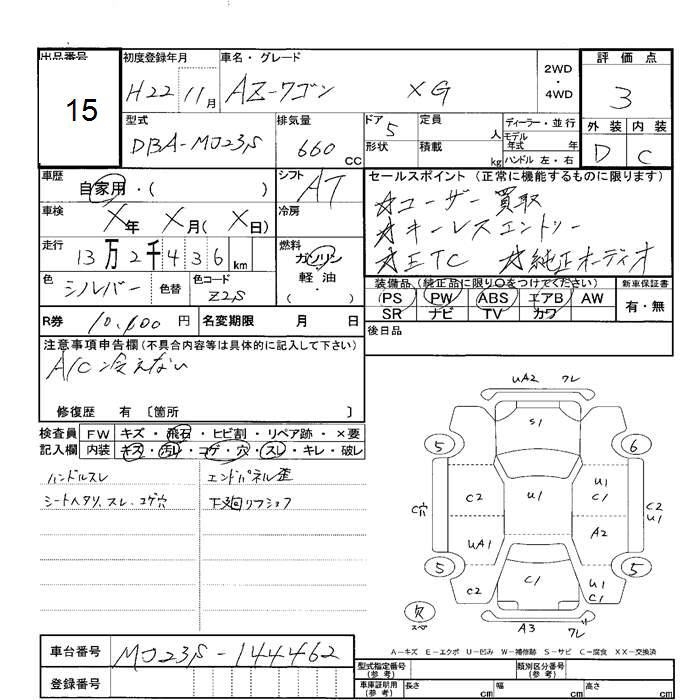 出品番号
15
初度登録年月
H22 11月
車名・グレード
AZ-ワゴン XG
2WD
・
4WD
評価点
3
型式
DBA-MJ23S
排気量
660 CC
ドア 5
形状
定員 人
積載 kg
ディーラー・並行
モデル年式 年
ハンドル 左・右
外装 内装
D C
車歴
自家用・( )
シフト AT
車検
X年 X月(X日)
冷房
走行
13万2千436km
燃料
ガソリン
軽油
・
( )
色 シルバー 色替 色コード Z2S
R券 10,600円 名変期限 月 日
セールスポイント (正常に機能するものに限ります)
☆ユーザー買取
☆キーレスエントリー
☆ETC ☆純正オーディオ
装備品(純正品に限り○をつけてください) 新車保証書
PS PW ABS エアB AW 有・無
SR ナビ TV カワ
後日品
注意事項申告欄(不具合内容等は具体的に記入して下さい)
A/C冷えない
修復歴 有〔箇所 〕
検査員 FW キズ・飛石・ヒビ割・リペア跡・×要
記入欄 内装 キズ・汚レ・コゲ・穴・スレ・キレ・破レ
ハンドルスレ エンドパネル歪
シートヘタリ、スレ、コゲ穴 下廻りフショク
UA2 ワレ
S1
5 6
C2 U1 U1 C1
C穴 C2 U1
UA1 A2
5 5
C2 C1 U1 C1
欠
スペ
A3 ワレ
A-キズ E-エクボ U-凹み W-補修跡 S-サビ C-腐食 XX-交換済
車台番号 MJ23S-144462
登録番号
型式指定番号(参考) 類別区分番号(参考)
車庫証明用(参考) 長さ cm 幅 cm 高さ cm